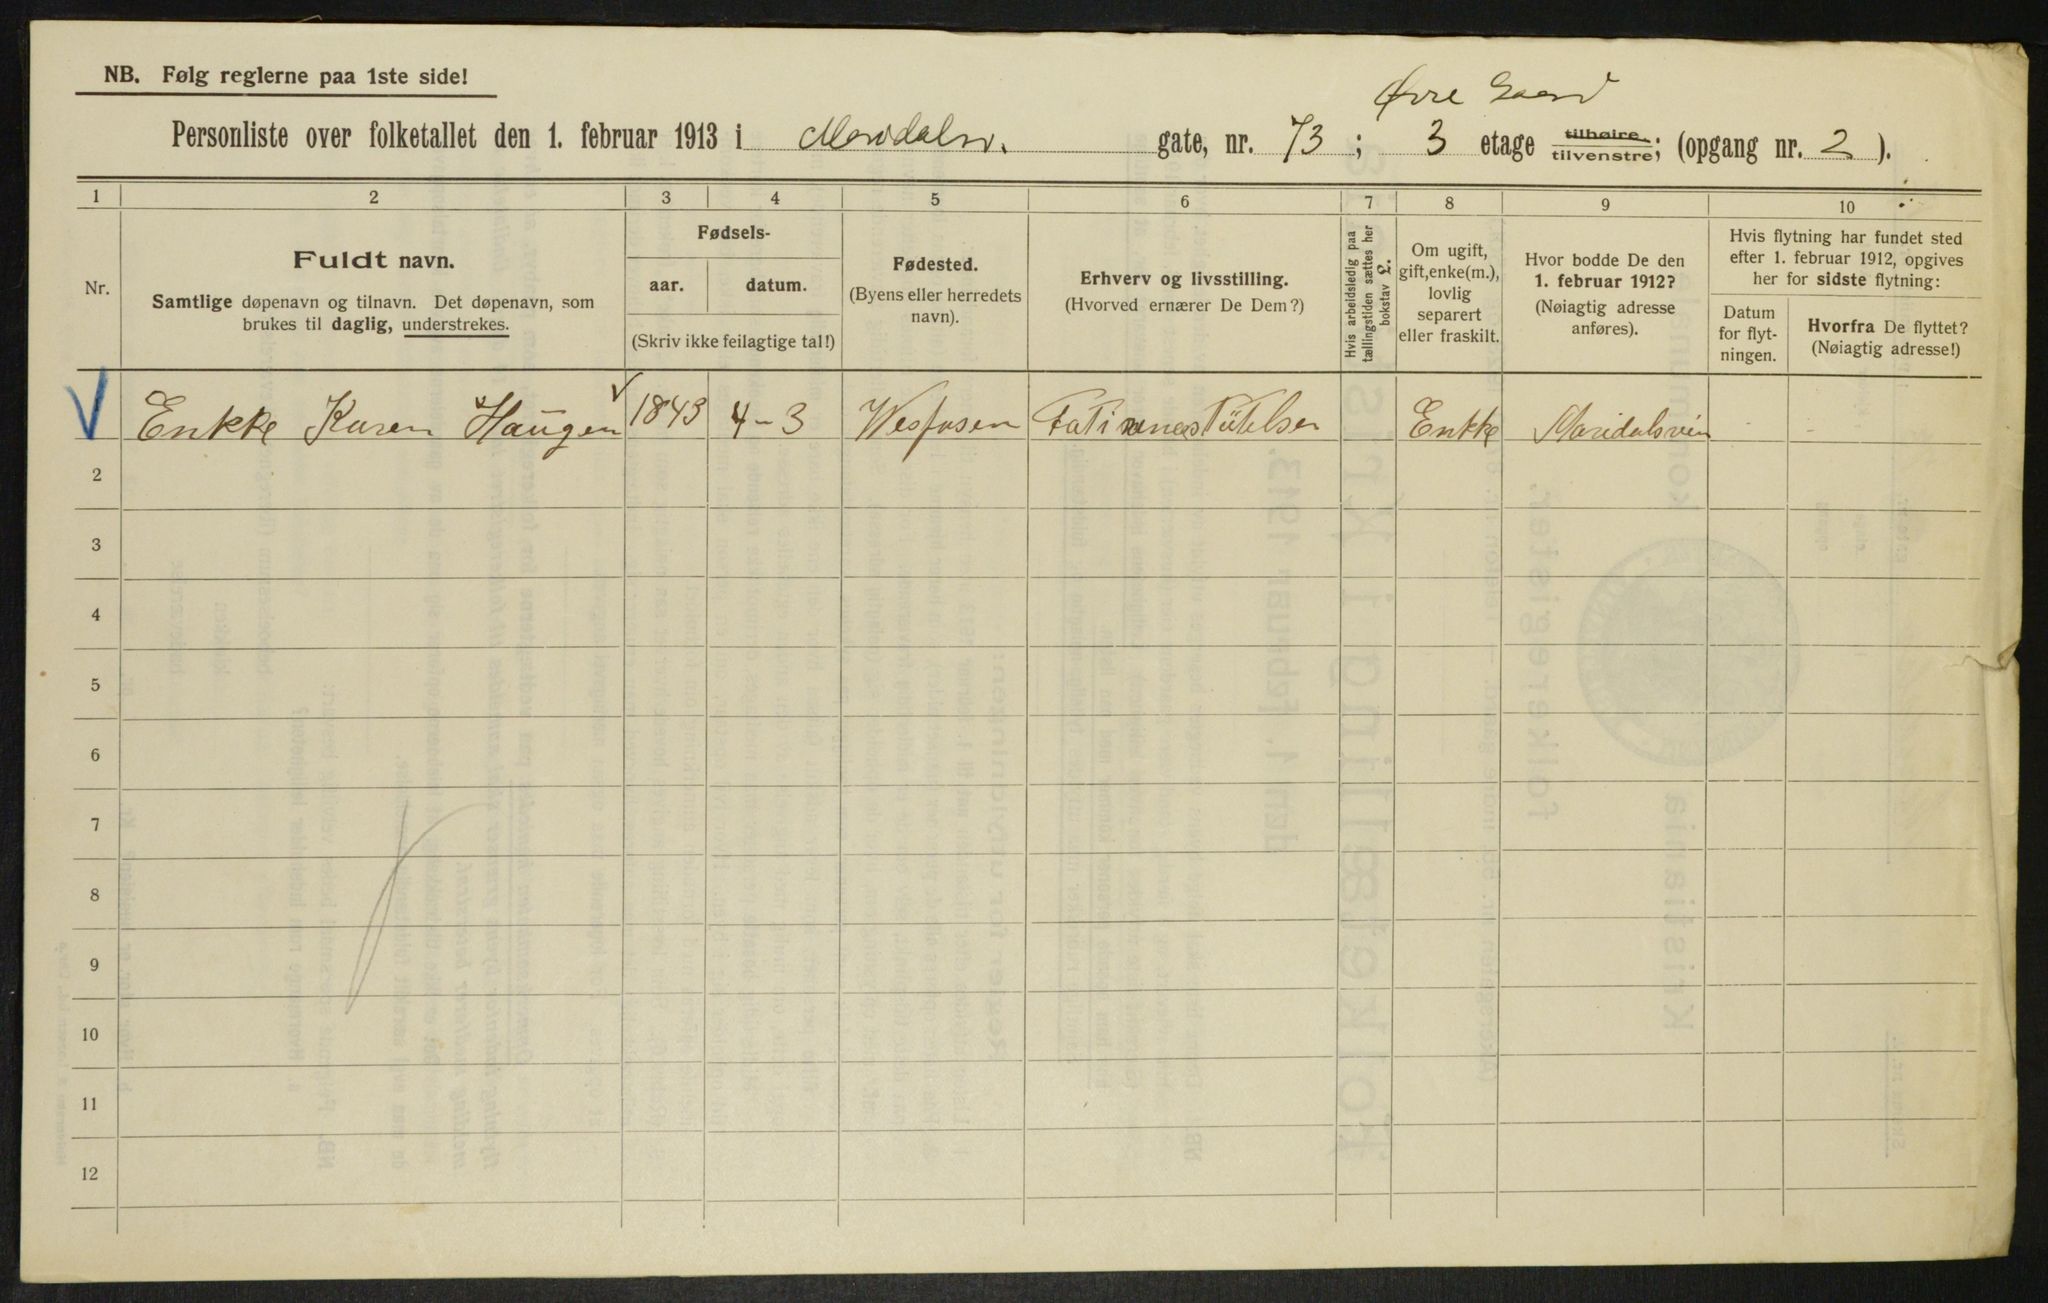 NB. Følg reglerne paa 1ste side!
Øvre Gaard
Personliste over folketallet den 1. februar 1913 i Maridalsv. gate, nr. 73; 3 etage tilhøire tilvenstre; (opgang nr. 2).
1 2 3 4 5 6 7 8 9 10
Nr.
Fuldt navn.
Samtlige døpenavn og tilnavn. Det døpenavn, som
brukes til daglig, understrekes.
Fødsels-
aar. datum.
(Skriv ikke feilagtige tal!)
Fødested.
(Byens eller herredets
navn).
Erhverv og livsstilling.
(Hvorved ernærer De Dem?)
Hvis arbeidsledig paa
tællingstiden sættes her
bokstav £.
Om ugift,
gift, enke(m.),
lovlig
separert
eller fraskilt.
Hvor bodde De den
1. februar 1912?
(Nøiagtig adresse
anføres).
Hvis flytning har fundet sted
efter 1. februar 1912, opgives
her for sidste flytning:
Datum
for flyt-
ningen.
Hvorfra De flyttet?
(Nøiagtig adresse!)
Enkke Karen Haugen 1843 4-3 Vesfosen Enkke Maridalsvein
2
3
4
5
6
7
8
9
10
11
12